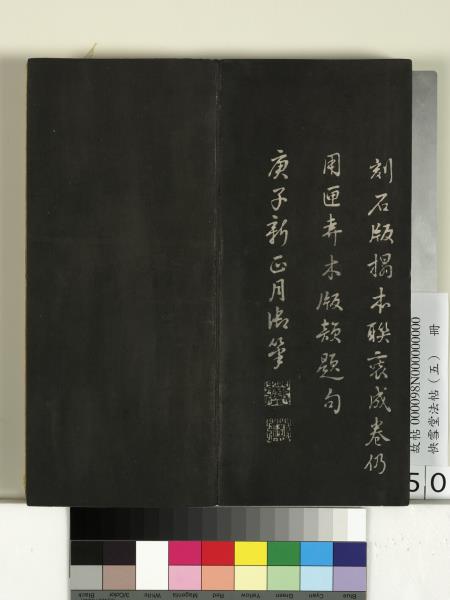 刻石版搨本聯裒成卷仍
用匣弆木版顏題句
庚子新正月御筆
故帖 000098N000000000
快雪堂法帖（五） 冊
50
Black
3/Color
White
Magenta
Red
Yellow
Green
Cyan
Blue